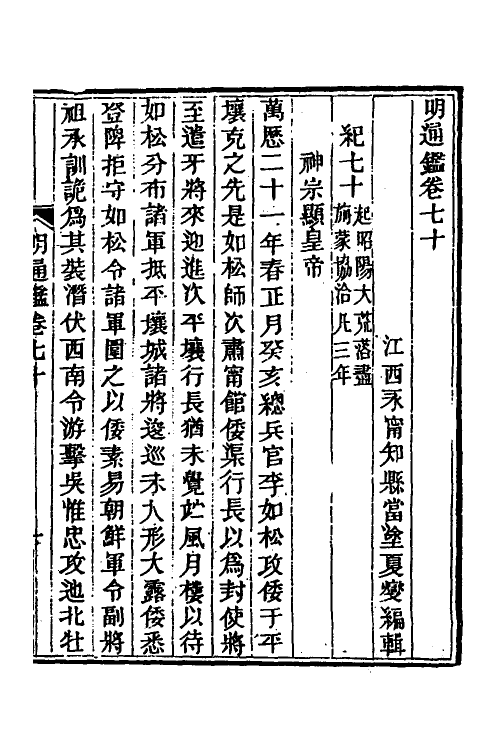 明通鑑卷七十
江西永甯知縣當塗夏燮編輯
紀七十起昭陽大荒落盡
旃蒙協洽凡三年
神宗顯皇帝
萬歷二十一年春正月癸亥總兵官李如松攻倭于平
壤克之先是如松師次肅甯館倭渠行長以爲封使將
至遣牙將來迎進次平壤行長猶未覺竚風月樓以待
如松分布諸軍抵平壤城諸將逡巡未入形大露倭悉
登陴拒守如松令諸軍圍之以倭素易朝鮮軍令副將
祖承訓詭爲其裝潛伏西南令游擊吳惟忠攻迤北牡
明通鑑卷七十